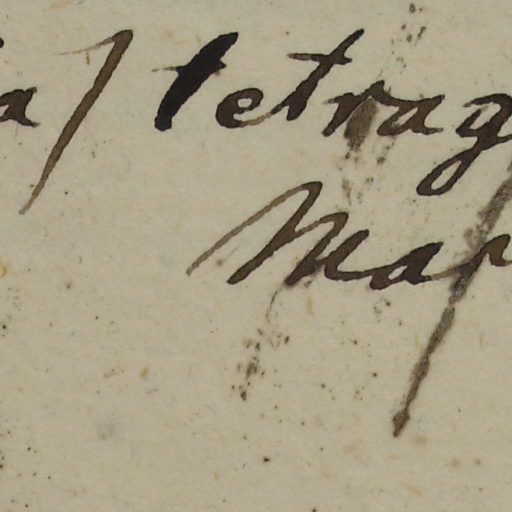 a/ tetrag
Mar